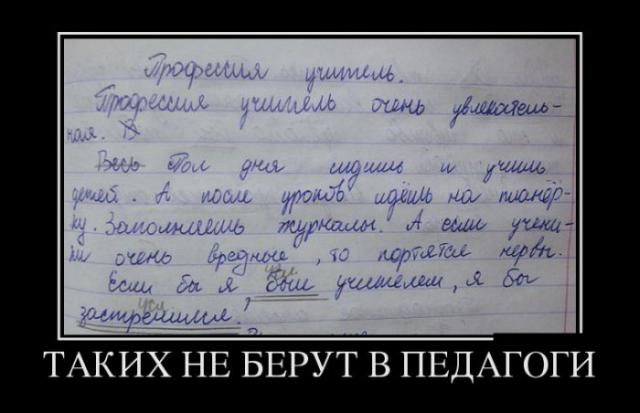 Профессия учитель.
Профессия учитель очень увлекатель-
ная. В
Весь Пол дня сидишь и учишь
детей. А после уроков идёшь на планёр-
ку. Заполняешь журналы. А если учени-
ки очень вредные, то портятся нервы.
усл
Если бы я был учителем, я бы
усл
застрелился.
ТАКИХ НЕ БЕРУТ В ПЕДАГОГИ